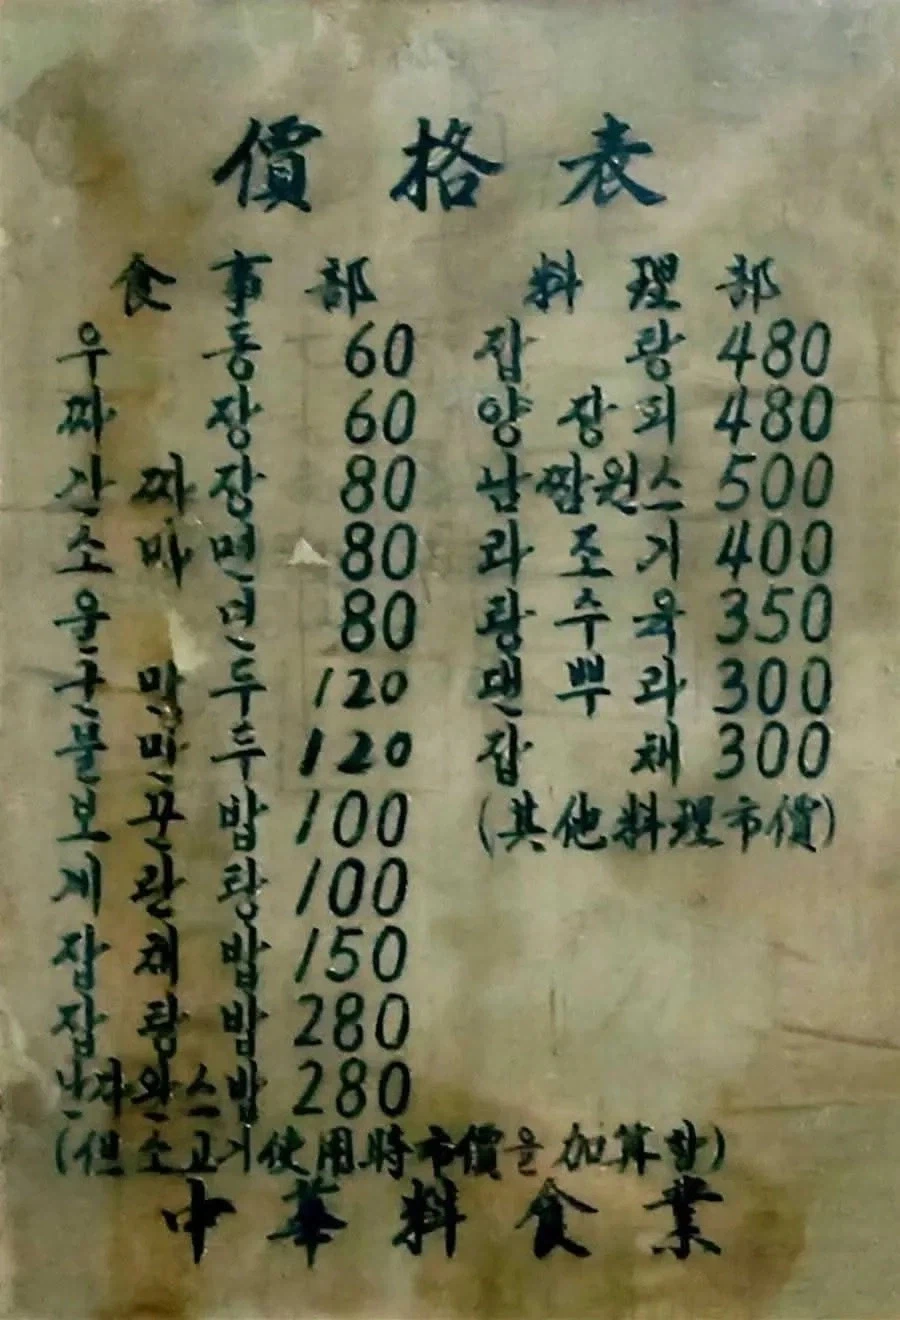 價格表
食事部
우동 60
짜장 60
간짜장 80
소마면 80
울면 80
구만두 120
물만두 120
보꾸밥 100
계란탕 100
잡채밥 150
잡탕밥 280
난자완스밥 280
料理部
잡탕 480
양장피 480
500
라조기 400
탕수육 350
댄뿌라 300
잡채 300
(其他料理市價)
(但 소고기 使用時市價을 加算함)
中華料食業